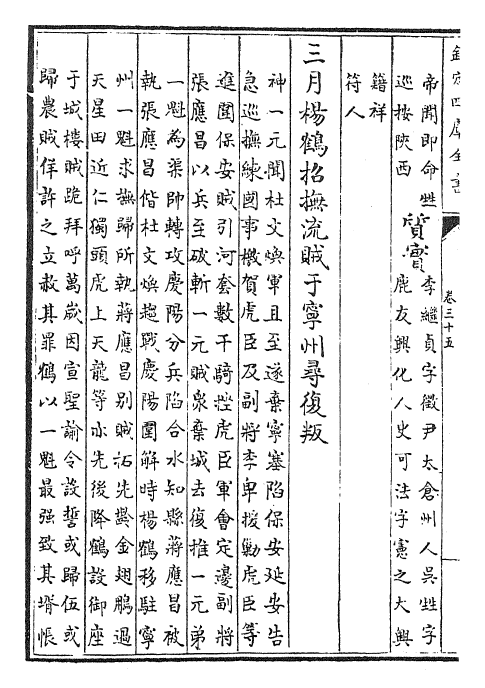 欽定四庫全書
卷三十五
帝聞即命甡
巡按陝西
質實
李繼貞字徵尹太倉州人吳甡字
鹿友興化人史可法字憲之大興
籍祥
符人
三月楊鶴招撫流賊于寧州尋復叛
神一元聞杜文煥軍且至遂棄寧塞陷保安延安告
急巡撫練國事檄賀虎臣及副將李卑援勦虎臣等
進圍保安賊引河套數千騎挫虎臣軍會定邊副將
張應昌以兵至破斬一元賊衆棄城去復推一元弟
一魁為渠帥轉攻慶陽分兵陷合水知縣蔣應昌被
執張應昌偕杜文煥趨戰慶陽圍解時楊鶴移駐寧
州一魁求撫歸所執蔣應昌別賊拓先齡金翅鵬過
天星田近仁獨頭虎上天龍等亦先後降鶴設御座
于城樓賊跪拜呼萬嵗因宣聖諭令設誓或歸伍或
歸農賊佯許之立赦其罪鶴以一魁最强致其壻帳